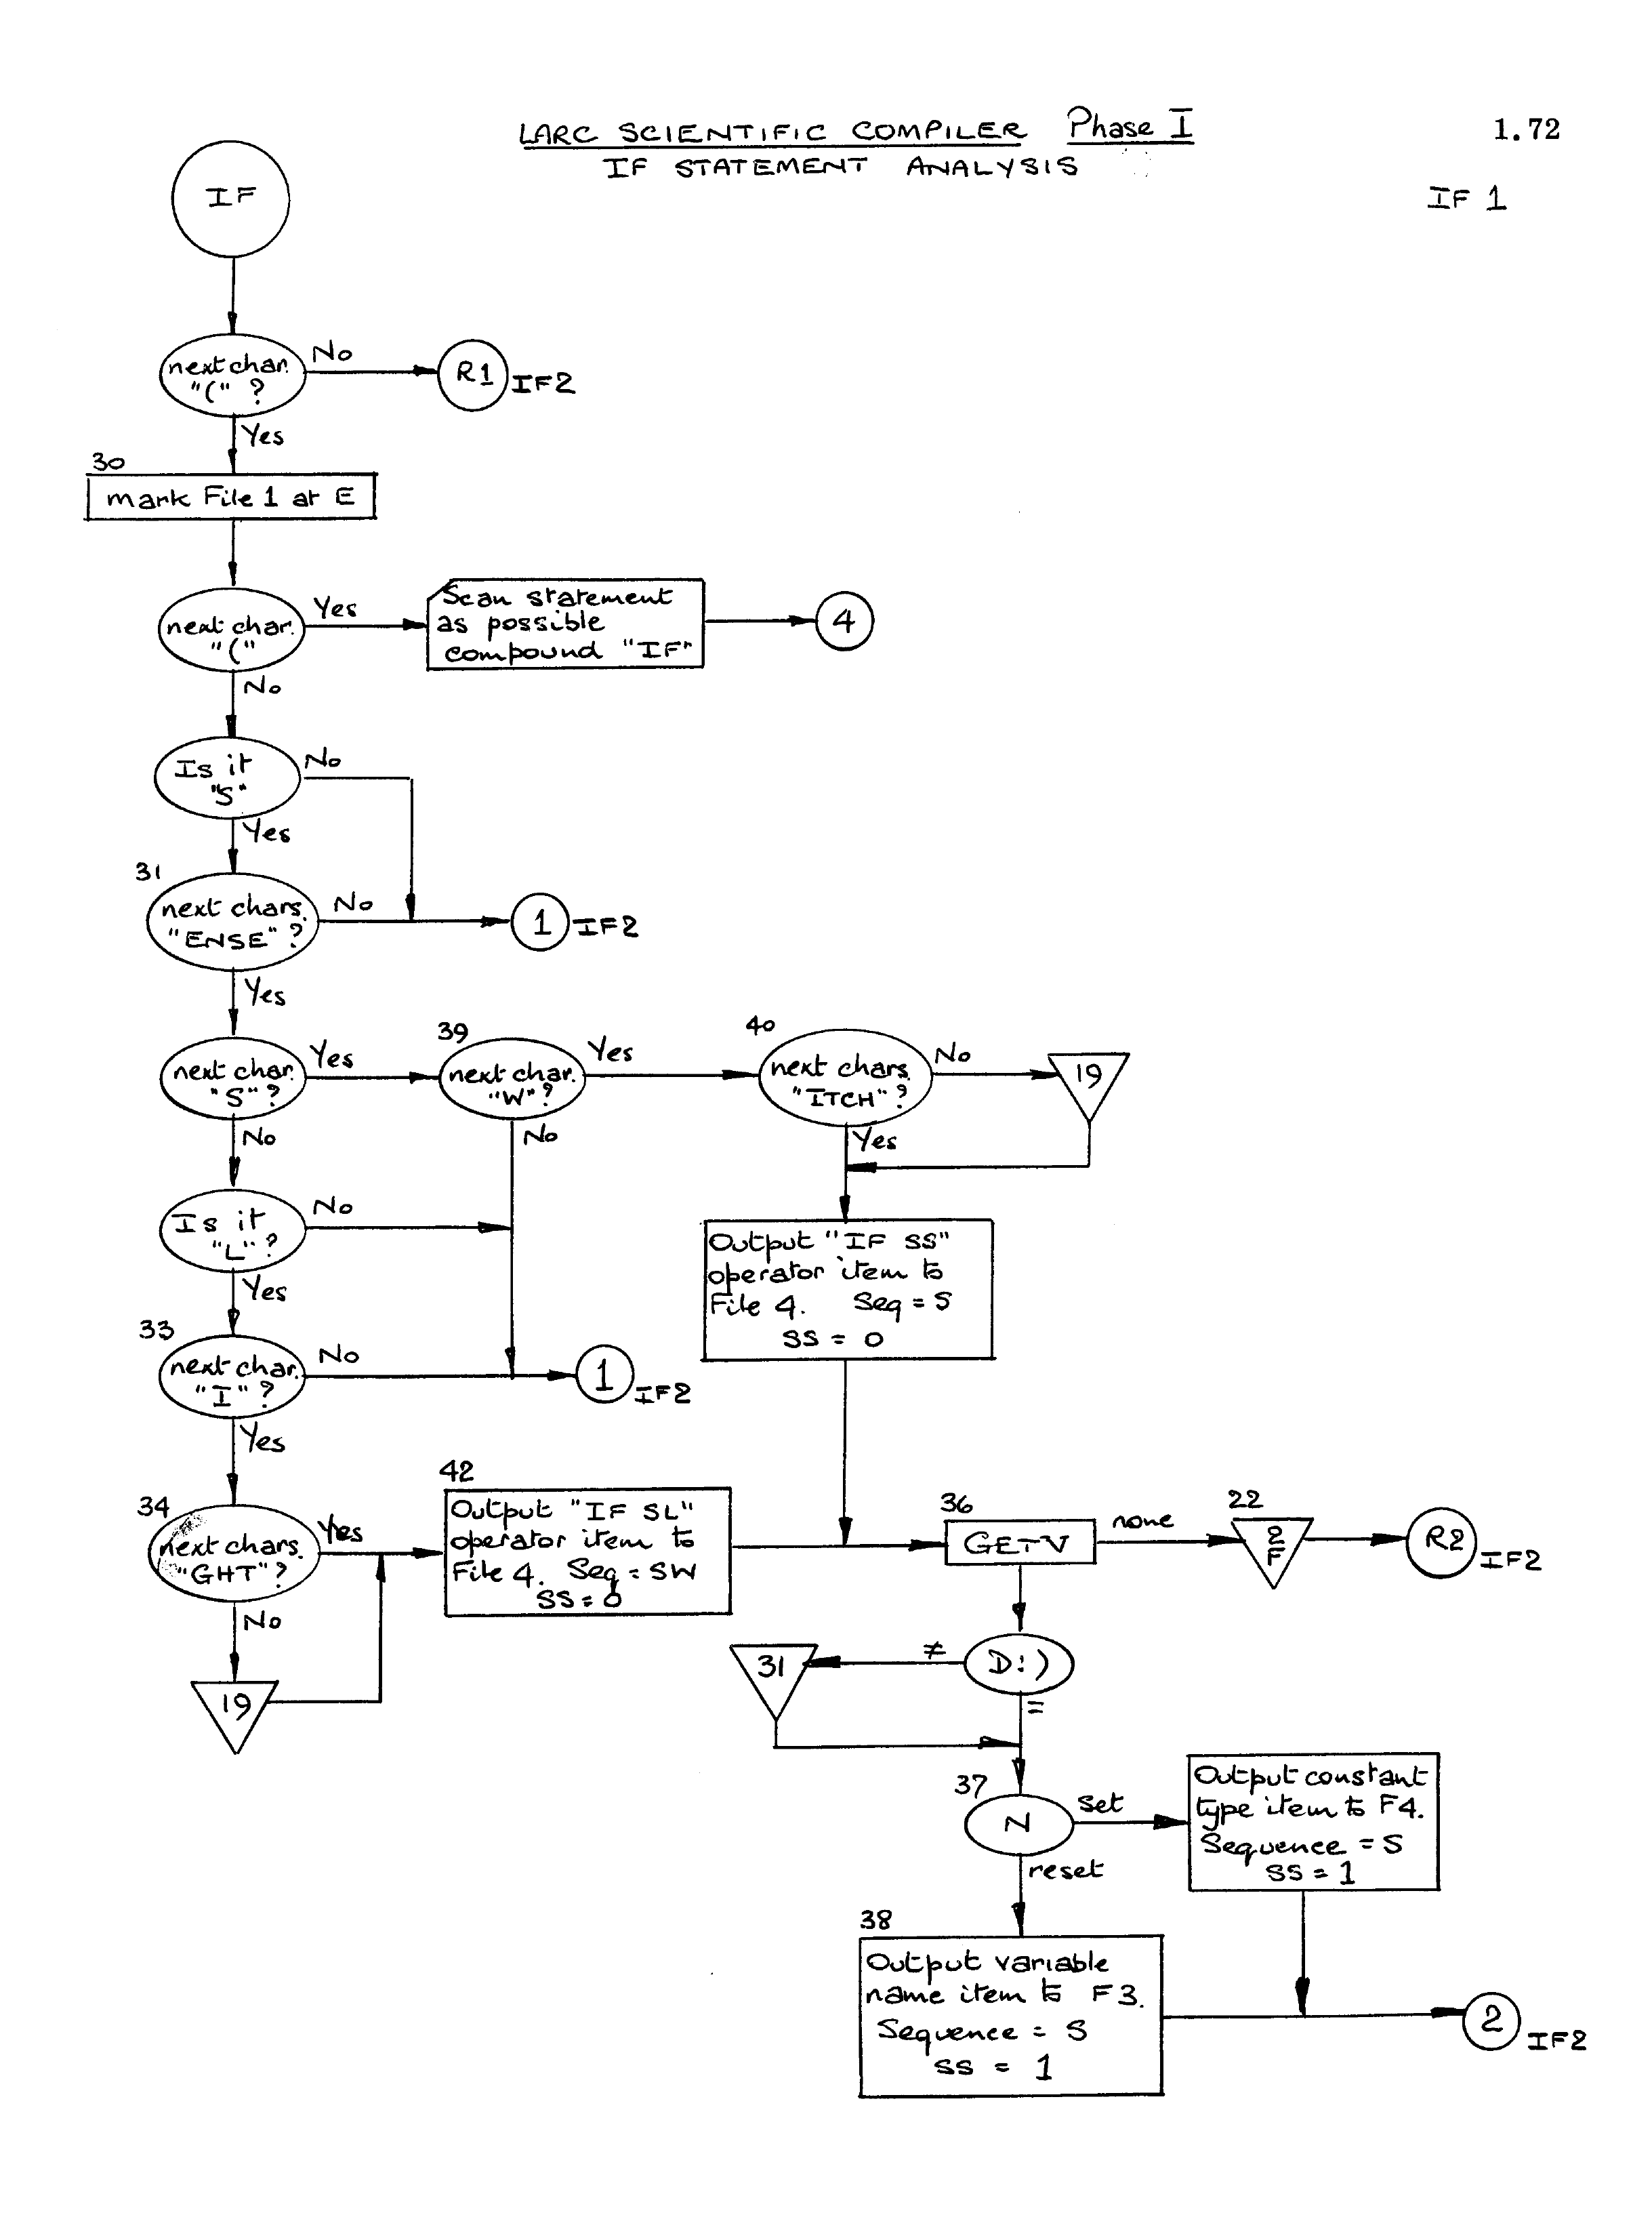 LARC SCIENTIFIC COMPILER Phase I
IF STATEMENT ANALYSIS
1.72
IF 1
IF
next char.
"(" ?
No
R1
IF2
Yes
30
mark File 1 at E
next char.
"("
Yes
Scan statement
as possible
compound "IF"
4
No
Is it
"S"
No
Yes
31
next chars.
"ENSE" ?
No
1
IF2
Yes
next char.
"S" ?
Yes
39
next char.
"W" ?
Yes
40
next chars.
"ITCH" ?
No
19
No
No
Yes
Is it
"L" ?
No
Output "IF SS"
operator item to
File 4. Seq = S
SS = 0
Yes
33
next char.
"I" ?
No
1
IF2
Yes
34
next chars.
"GHT" ?
Yes
42
Output "IF SL"
operator item to
File 4. Seq = SW
SS = 0
36
GETV
none
22
2/F
R2
IF2
No
19
D:)
≠
31
=
37
N
set
Output constant
type item to F4.
Sequence = S
SS = 1
reset
38
Output variable
name item to F3.
Sequence = S
SS = 1
2
IF2